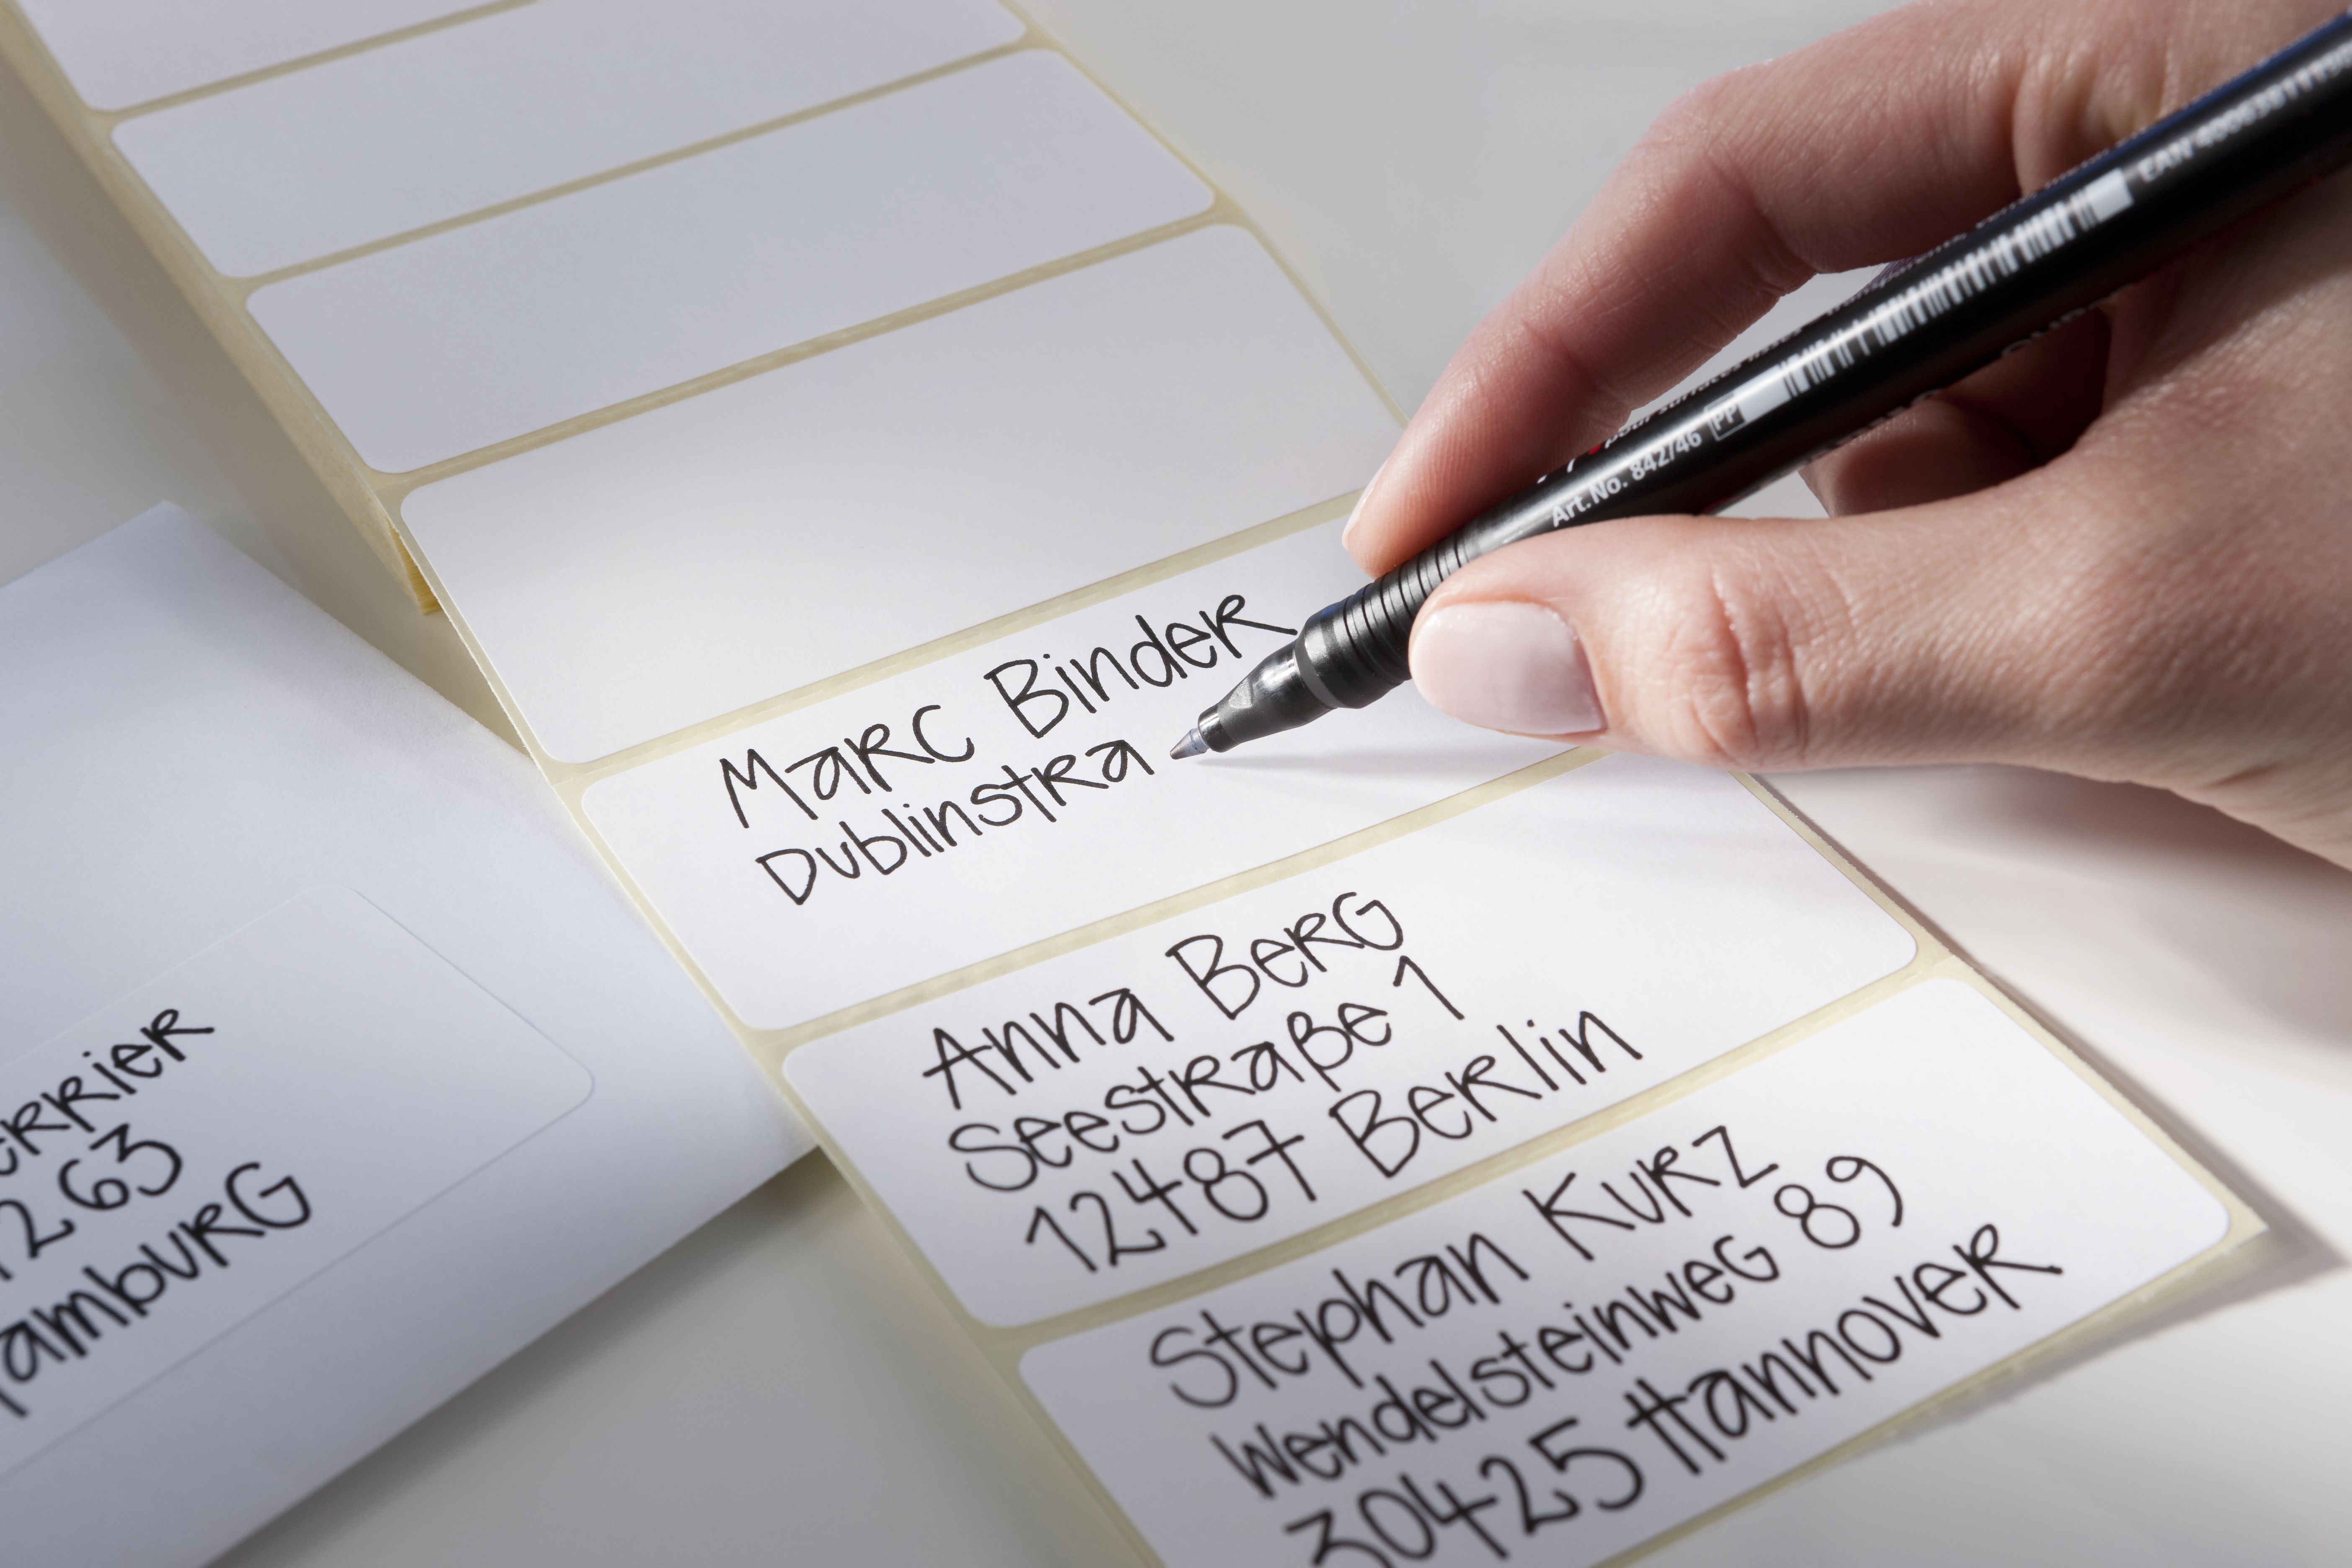 Marc Binder
Dublinstra
Anna Berg
Seestraße 1
12487 Berlin
Stephan Kurz
Wendelsteinweg 89
30425 Hannover
263
Art.No. 842/46 PP
EAN